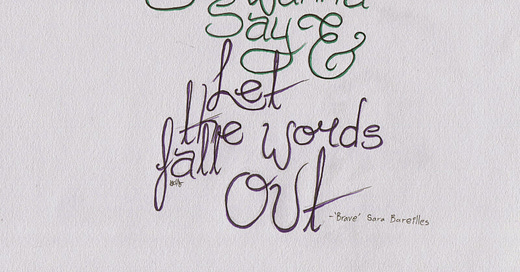 wanna
Say &
Let
the words
fall
Out
-'Brave' Sara Bareilles